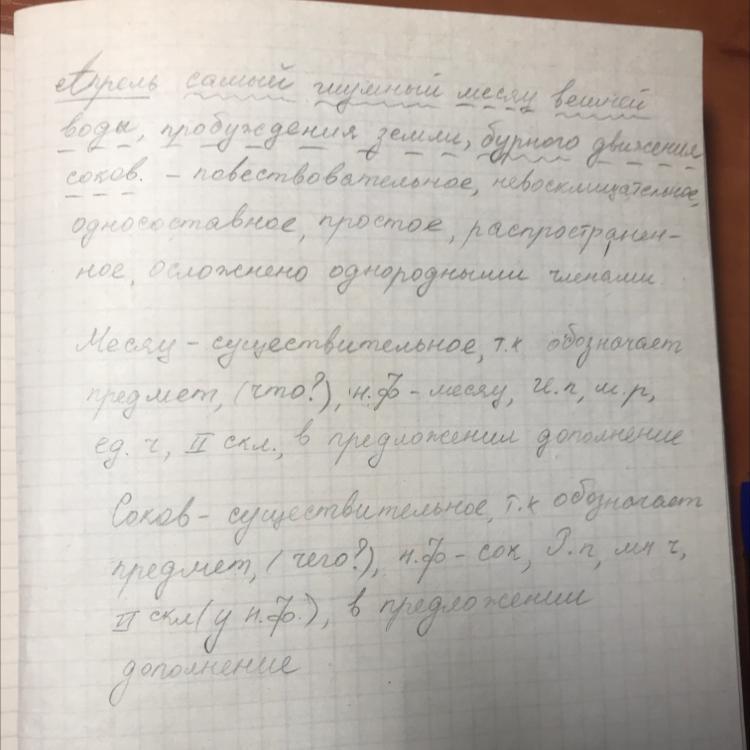 Апрель самый шумный месяц вешней
воды, пробуждения земли, бурного движения
соков. – повествовательное, невосклицательное,
односоставное, простое, распространен-
ное, осложнено однородными членами
Месяц – существительное, т.к обозначает
предмет, (что?), н.ф – месяц, И.п, м.р,
ед. ч, II скл., в предложении дополнение
Соков – существительное, т.к обозначает
предмет, (чего?), н.ф – сок, Р.п, мн ч,
II скл (у н.ф.), в предложении
дополнение